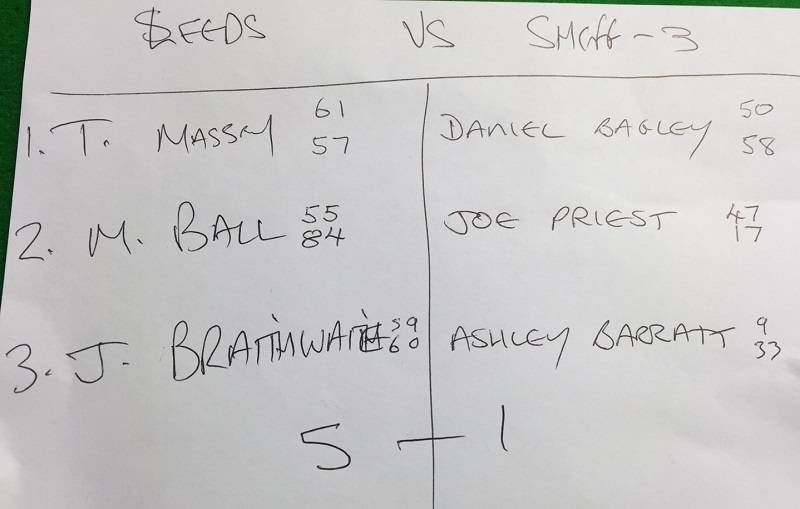 SEEDS VS SMGff-3
1. T. MASSEY 61 DANIEL BAGLEY 50
57 58
2. M. BALL 55 JOE PRIEST 47
84 17
3. J. BRAITHWAITE 59 ASHLEY BARRATT 9
60 33
5 - 1